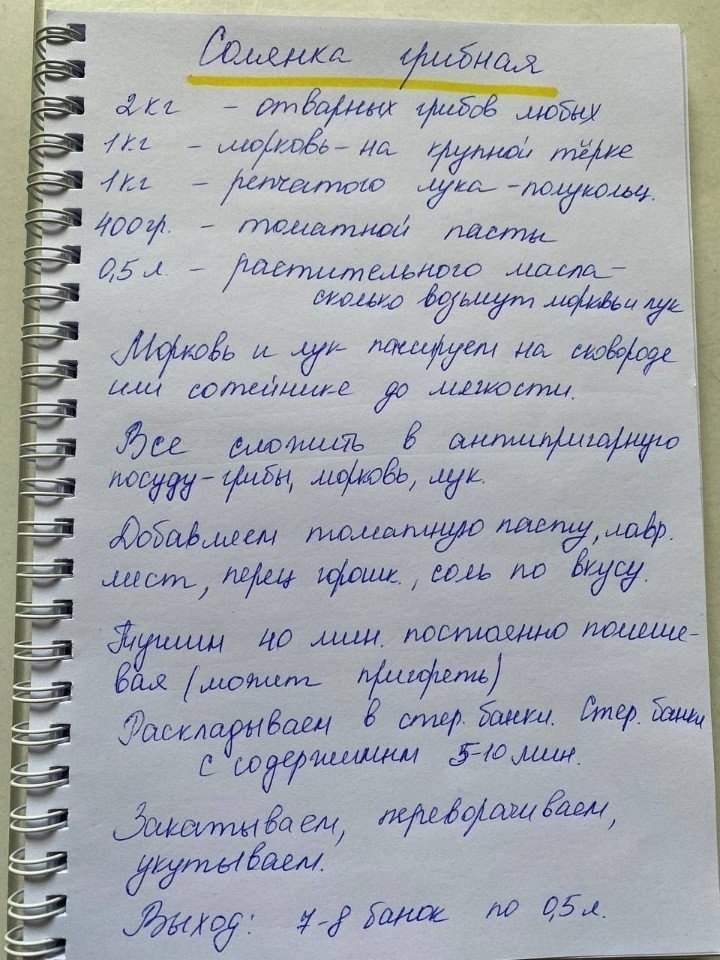 Солянка грибная
2кг - отварных грибов любых
1кг - морковь - на крупной тёрке
1кг - репчатого лука - полукольц.
400гр. - томатной пасты
0,5 л. - растительного масла -
сколько возьмут морковь и лук
Морковь и лук пассируем на сковороде
или сотейнике до мягкости.
Все сложить в антипригарную
посуду - грибы, морковь, лук.
Добавляем томатную пасту, лавр.
лист, перец горошк., соль по вкусу.
Тушим 40 мин. постоянно помеши-
вая (может пригореть)
Раскладываем в стер. банки. Стер. банки
с содержимым 5-10 мин.
Закатываем, переворачиваем,
укутываем.
Выход: 7-8 банок по 0,5 л.